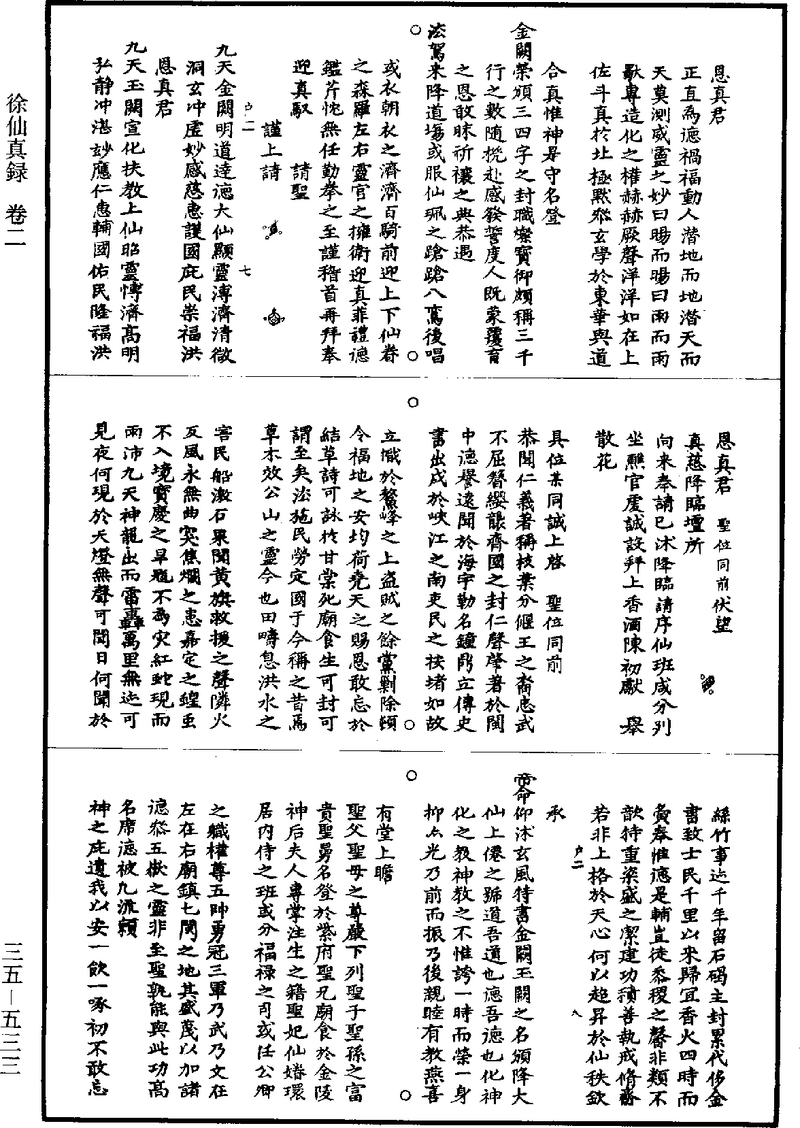 徐仙真録　卷二
恩真君
正直為德禍福動人潛地而地潛天而
天莫測威靈之妙曰暘而暘曰雨而雨
歡專造化之權赫赫厥聲洋洋如在上
佐斗真於北極默飛玄學於東華與道
合真惟神是守名登
金闕榮頒三四字之封職燦寶仰頗稱三千
行之數隨機赴感發誓度人既蒙覆育
之恩敢昧祈禳之典恭遇
法駕来降道場或服仙珮之蹌蹌八鸞後唱
或衣朝衣之濟濟百騎前迎上下仙眷
之森羅左右靈官之擁衛迎真菲禮德
鑑芹忱無任勤拳之至謹稽首再拜奉
迎真馭　請聖
謹上請
户二　七
九天金闕明道達德大仙顯靈溥濟清微
洞玄冲虛妙感慈惠護國庇民崇福洪
恩真君
九天玉闕宣化扶教上仙昭靈博濟高明
弘静冲湛妙應仁惠輔國佑民隆福洪
恩真君　聖位同前伏望
真慈降臨壇所
向来奉請已沐降臨請序仙班咸分列
坐醮官虔誠設拜上香酒陳初獻　舉
散花
具位某同誠上啓　聖位同前
恭聞仁義著稱枝葉分偃王之裔忠武
不屈簪纓襲齊國之封仁聲肇著於閩
中德譽遠聞於海宇勒名鐘鼎立傳史
書出戍於峽江之南吏民之按堵如故
立墄於鰲峰之上盗賊之餘黨剿除頓
令福地之安均荷堯天之賜恩敢忘於
結草詩可詠於甘棠死廟食生可封可
謂至矣法施民勞定國于今稱之昔焉
草木效公山之靈今也田疇息洪水之
害民船漱石果聞黄旗救援之聲隣火
反風永無曲突焦爛之患嘉定之蝗虫
不入境寶慶之旱魃不為灾紅蛇現而
雨沛九天神龍出而雷轟萬里無迹可
見夜何現於天燈無聲可聞日何聞於
絲竹事迹千年留石碣主封累代侈金
書致士民千里以来歸宜香火四時而
奠奉惟德是輔豈徒黍稷之馨非類不
歆特重粢盛之潔建功積善執戒脩齋
若非上格於天心何以超昇於仙秩欽
户二　八
承
帝命仰沐玄風特書金闕玉闕之名頒降大
仙上僊之號道吾道也德吾德也化神
化之教神教之不惟誇一時而榮一身
抑亦光乃前而振乃後親睦有教燕喜
有堂上瞻
聖父聖母之尊嚴下列聖子聖孫之富
貴聖舅名登於紫府聖兄廟食於金陵
神后夫人專掌注生之籍聖妃仙婚環
居内侍之班或分福禄之司或任公卿
之職權尊五帥勇冠三軍乃武乃文在
左在右廟鎮七閩之地其盛茂以加諸
德恭五嶽之靈非至聖孰能與此功高
名席德被九流賴
神之庇遺我以安一飲一啄初不敢忘
三五—五三三